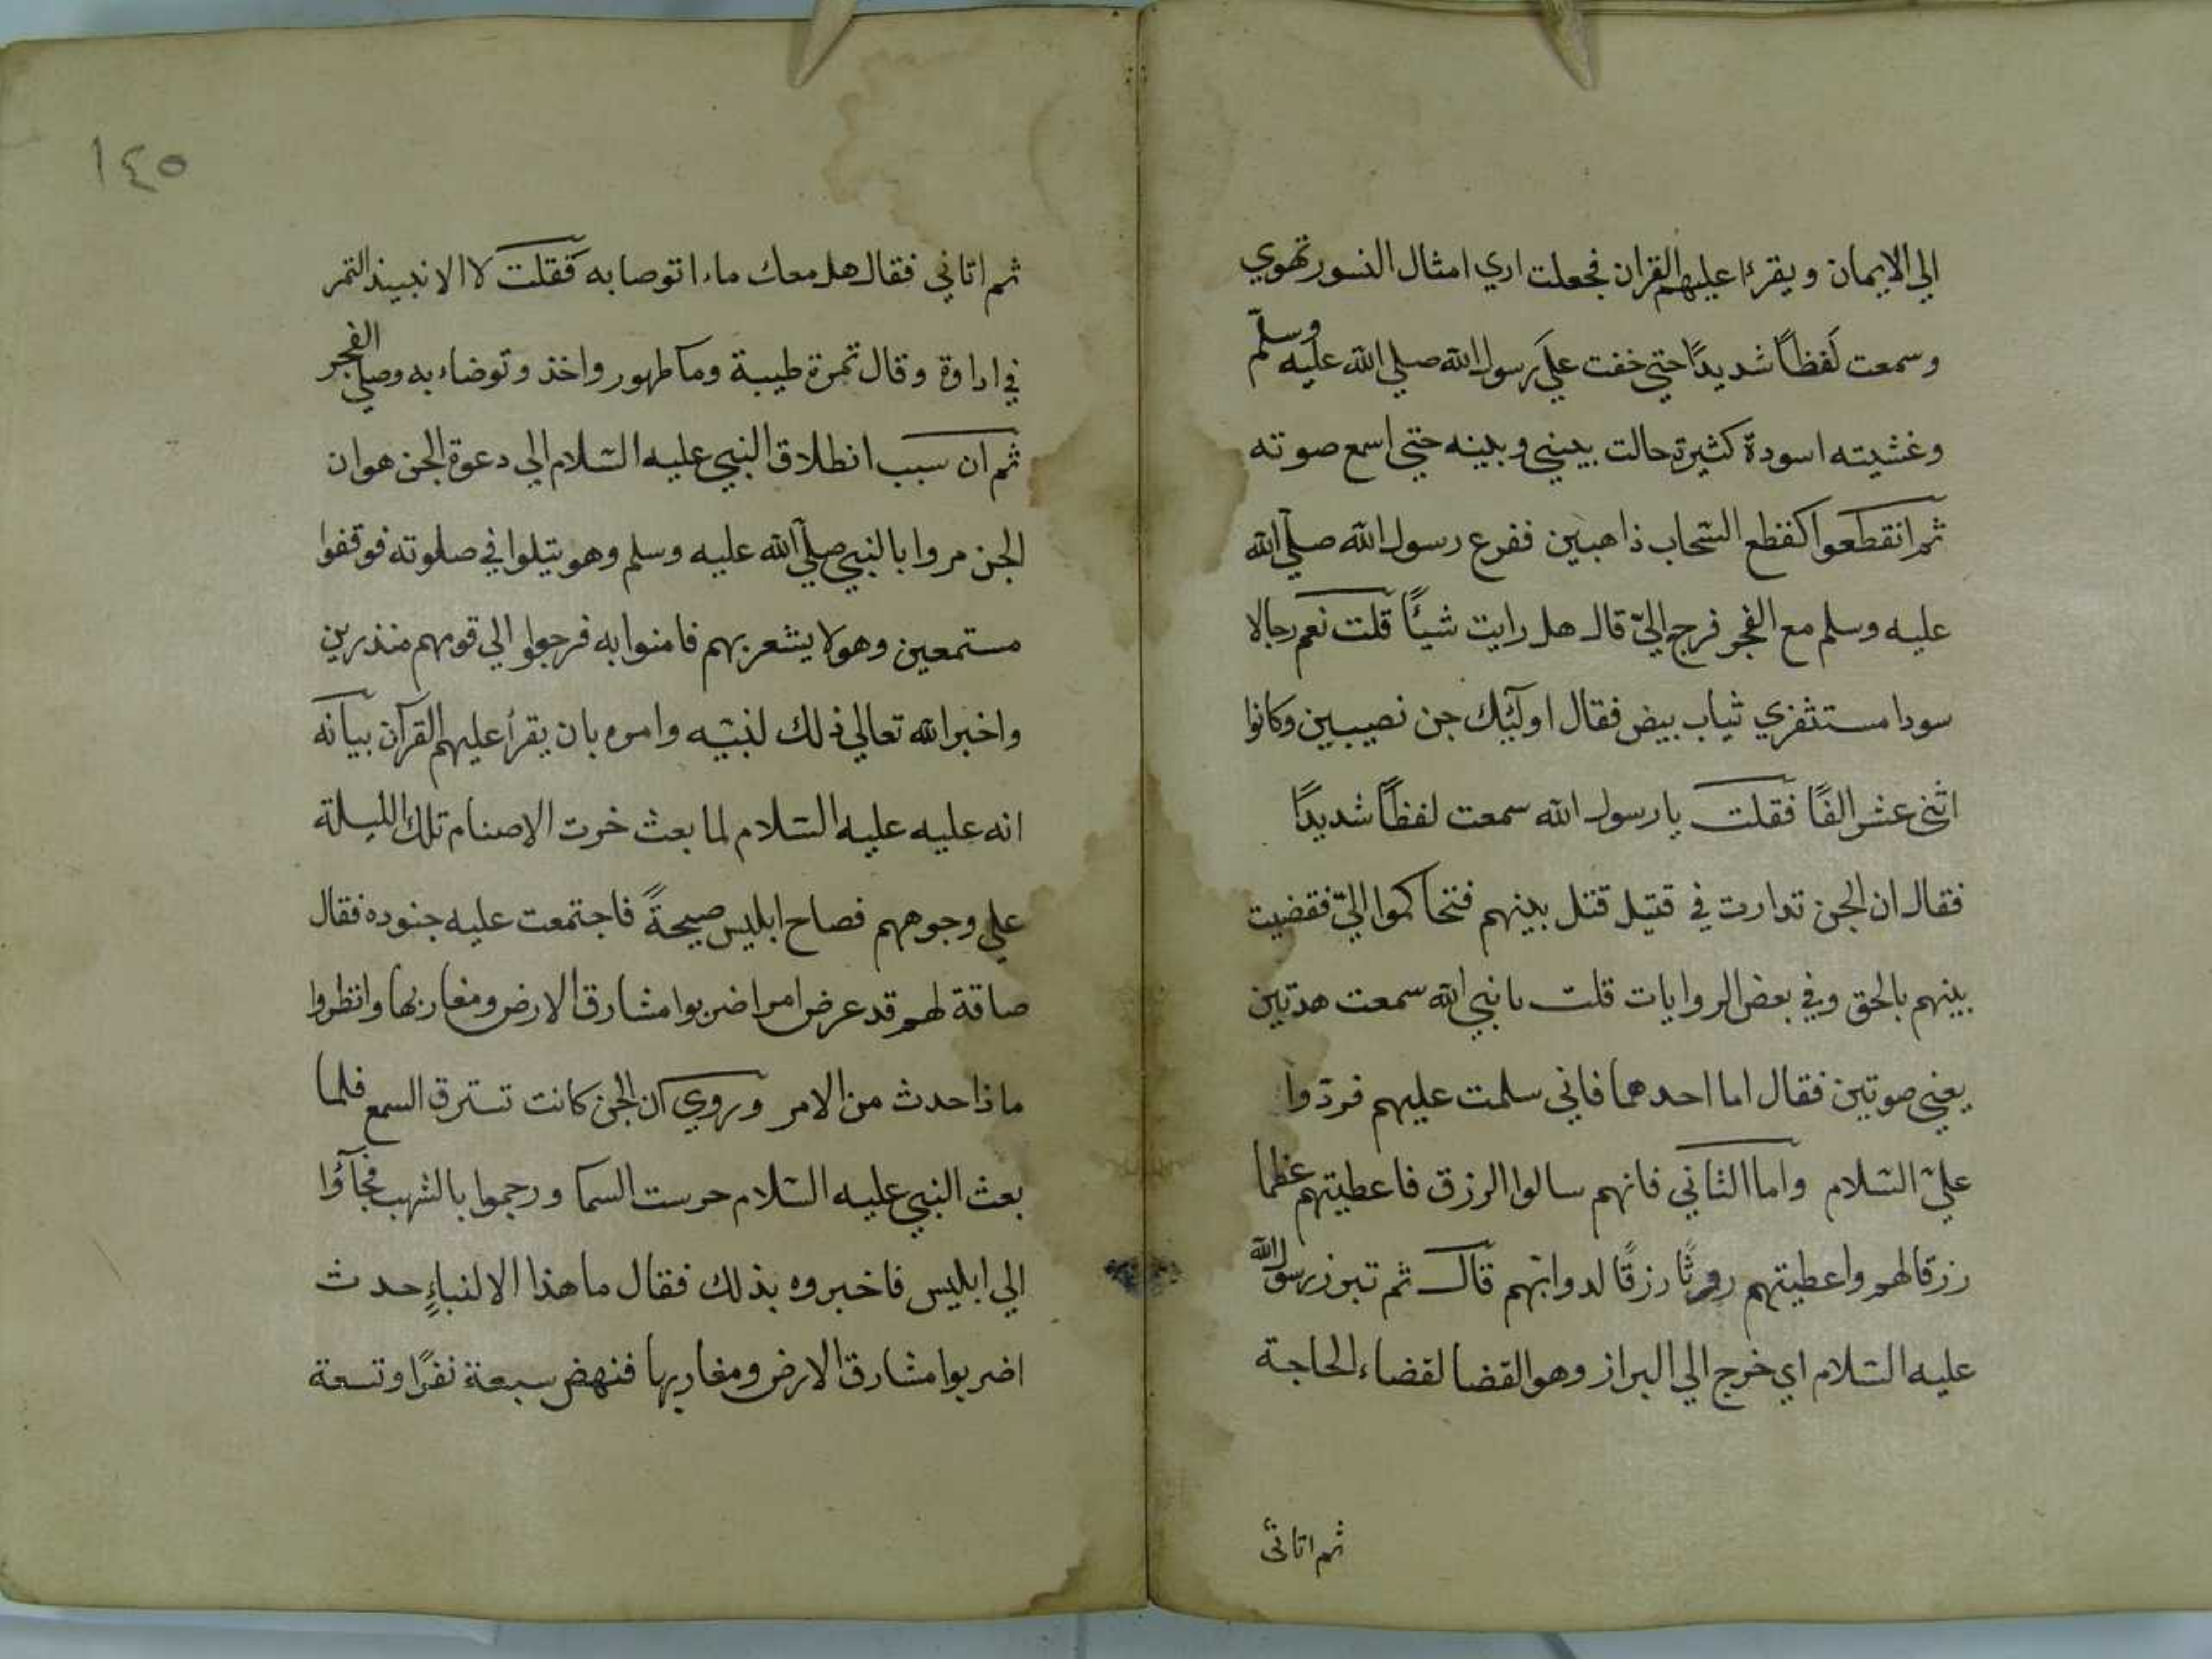 الي الايمان ويقرءا عليهم القران فجعلت اري امثال النسور تهوي
وسمعت لَفظاً شديدًا حتي خفت علي رسول الله صلي الله عليه وسلّم
وغشيته اسودة كثيرة حالت بيني وبينه حتي اسمع صوته
ثم انقطعوا كقطع السّحاب ذاهبين ففرع رسول الله صلّي الله
عليه وسلم مع الفجر فرجع اليّ قال هل رايت شيئًا قلت نعم رجالا
سودا مستثفري ثياب بيض فقال اولٓئك جن نصيبين وكانوا
اثني عشر الفًا فقلت يا رسول الله سمعت لفظاً شديدًا
فقال ان الجن تدارت في قتيل قتل بينهم فتحاكموا اليّ فقضيت
بينهم بالحق وفي بعض الروايات قلت يا نبي الله سمعت هدتين
يعني صوتين فقال اما احدهما فاني سلمت عليهم فردّوا
عليّ السّلام واما الثاني فانهم سالوا الرزق فاعطيتهم عظما
رزقا لهم واعطيتهم روثًا رزقًا لدوابّهم قال ثم تبرز رسول الله
عليه السّلام اي خرج الي البراز وهو القضا لقضاء الحاجة
ثم اتاني
١٤٥
ثم اتاني فقال هل معك ماء اتوصا به فقلت لا الا نبيذ التمر
في اداوة وقال تمرة طيبة وما طهور واخذ وتوضاء به وصلي الفجر
ثم ان سبب انطلاق النبي عليه السّلام الي دعوة الجن هو ان
الجن مروا بالنبي صلّي الله عليه وسلم وهو يتلوا في صلوته فوقفوا
مستمعين وهو لا يشعر بهم فامنوا به فرجعوا الي قومهم منذرين
واخبر الله تعالي ذلك لنبيّه وامره بان يقرأ عليهم القرآن بيانه
انه عليه عليه السّلام لما بعث خرت الاصنام تلك الليلة
علي وجوههم فصاح ابليس صيحةً فاجتمعت عليه جنوده فقال
صاقة لهم قد عرض امر اضربوا مشارق الارض ومغاربها وانظروا
ماذا حدث من الامر وروي ان الجن كانت تسترق السمع فلما
بعث النبي عليه السّلام حرست السما ورجموا بالشهب فجآؤا
الي ابليس فاخبروه بذلك فقال ما هذا الا لنباءٍ حدث
اضربوا مشارق الارض ومغاربها فنهض سبعة نفرًا وتسعة